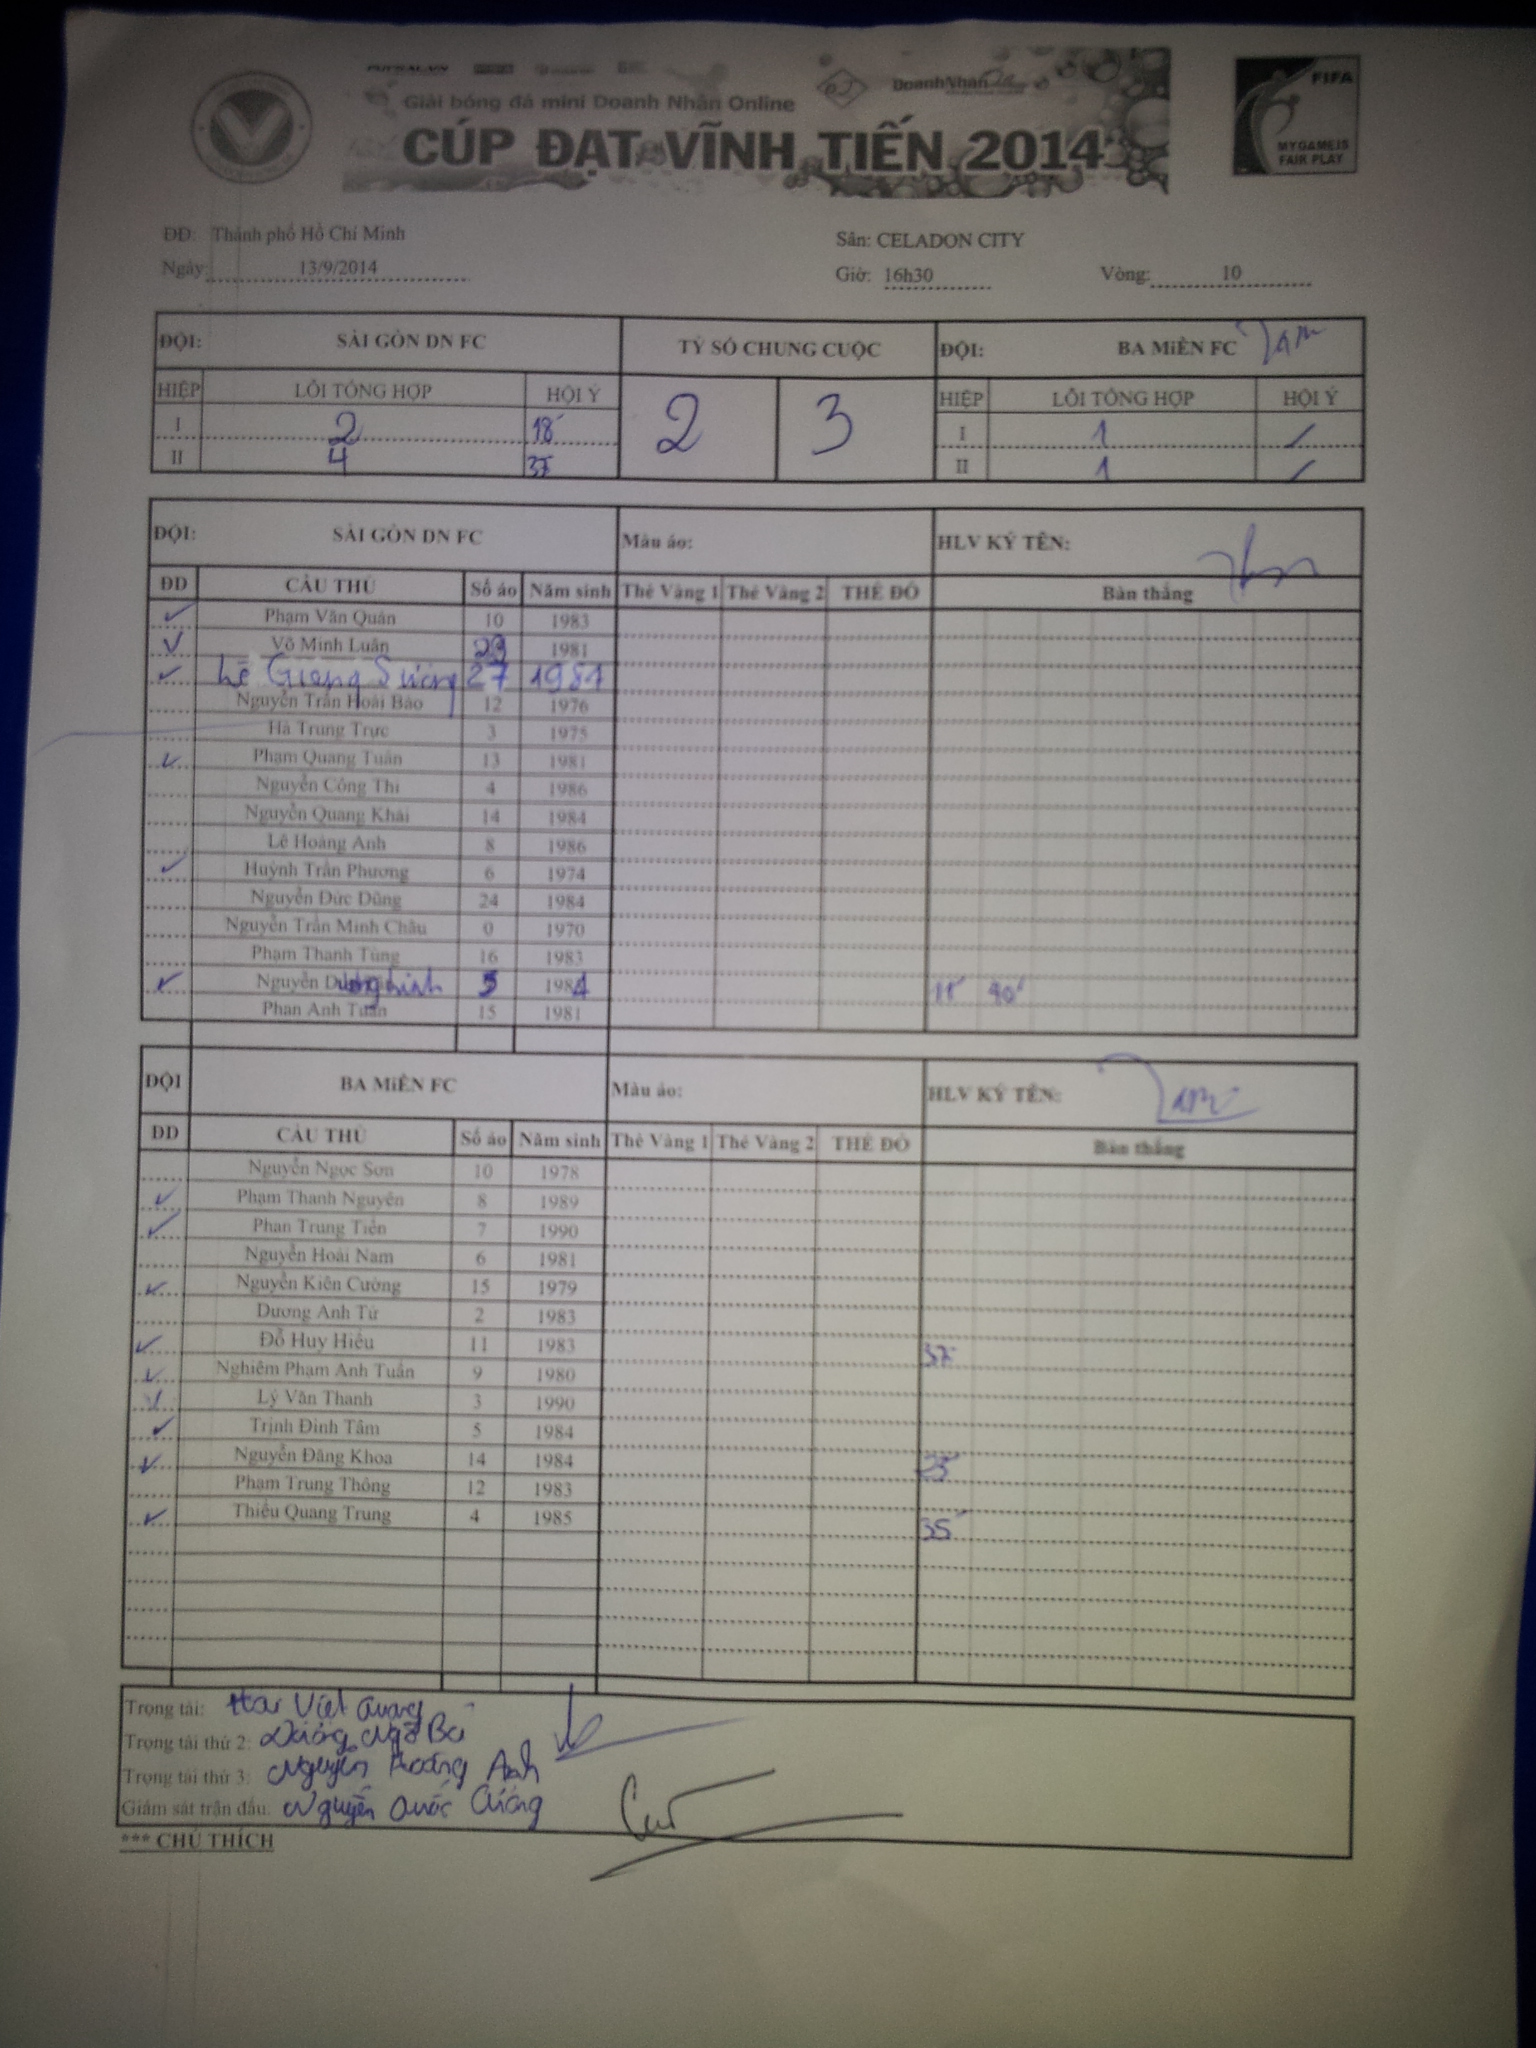 Giải bóng đá mini Doanh Nhân Online
DoanhNhân
CÚP ĐẠT VĨNH TIẾN 2014
FIFA
MY GAME IS
FAIR PLAY
ĐĐ: Thành phố Hồ Chí Minh Sân: CELADON CITY
Ngày: 13/9/2014 Giờ: 16h30 Vòng: 10
ĐỘI: SÀI GÒN DN FC TỶ SỐ CHUNG CUỘC ĐỘI: BA MiỀN FC
HIỆP LỖI TỔNG HỢP HỘI Ý 2 3 HIỆP LỖI TỔNG HỢP HỘI Ý
I 2 18' I 1 /
II 4 37 II 1 /
ĐỘI: SÀI GÒN DN FC Màu áo: HLV KÝ TÊN:
ĐD CẦU THỦ Số áo Năm sinh Thẻ Vàng 1 Thẻ Vàng 2 THẺ ĐỎ Bàn thắng
Phạm Văn Quân 10 1983
Võ Minh Luân 1981
Lê Giang Sương 27 1981
Nguyễn Trần Hoài Bảo 12 1976
Hà Trung Trực 3 1975
Phạm Quang Tuấn 13 1981
Nguyễn Công Thi 4 1986
Nguyễn Quang Khải 14 1984
Lê Hoàng Anh 8 1986
Huỳnh Trần Phương 6 1974
Nguyễn Đức Dũng 24 1984
Nguyễn Trần Minh Châu 0 1970
Phạm Thanh Tùng 16 1983
Nguyễn 5 1984 40'
Phan Anh Tuấn 15 1981
ĐỘI BA MiỀN FC Màu áo: HLV KÝ TÊN:
DD CẦU THỦ Số áo Năm sinh Thẻ Vàng 1 Thẻ Vàng 2 THẺ ĐỎ Bàn thắng
Nguyễn Ngọc Sơn 10 1978
Phạm Thanh Nguyên 8 1989
Phan Trung Tiến 7 1990
Nguyễn Hoài Nam 6 1981
Nguyễn Kiên Cường 15 1979
Dương Anh Tử 2 1983
Đỗ Huy Hiếu 11 1983 37'
Nghiêm Phạm Anh Tuấn 9 1980
Lý Văn Thanh 3 1990
Trịnh Đình Tâm 5 1984
Nguyễn Đăng Khoa 14 1984 25'
Phạm Trung Thông 12 1983
Thiều Quang Trung 4 1985 35'
Trọng tài: Việt Quang
Trọng tài thứ 2: Dương Ngô
Trọng tài thứ 3: Nguyễn Hoàng Anh
Giám sát trận đấu: Nguyễn Quốc Cường
*** CHÚ THÍCH